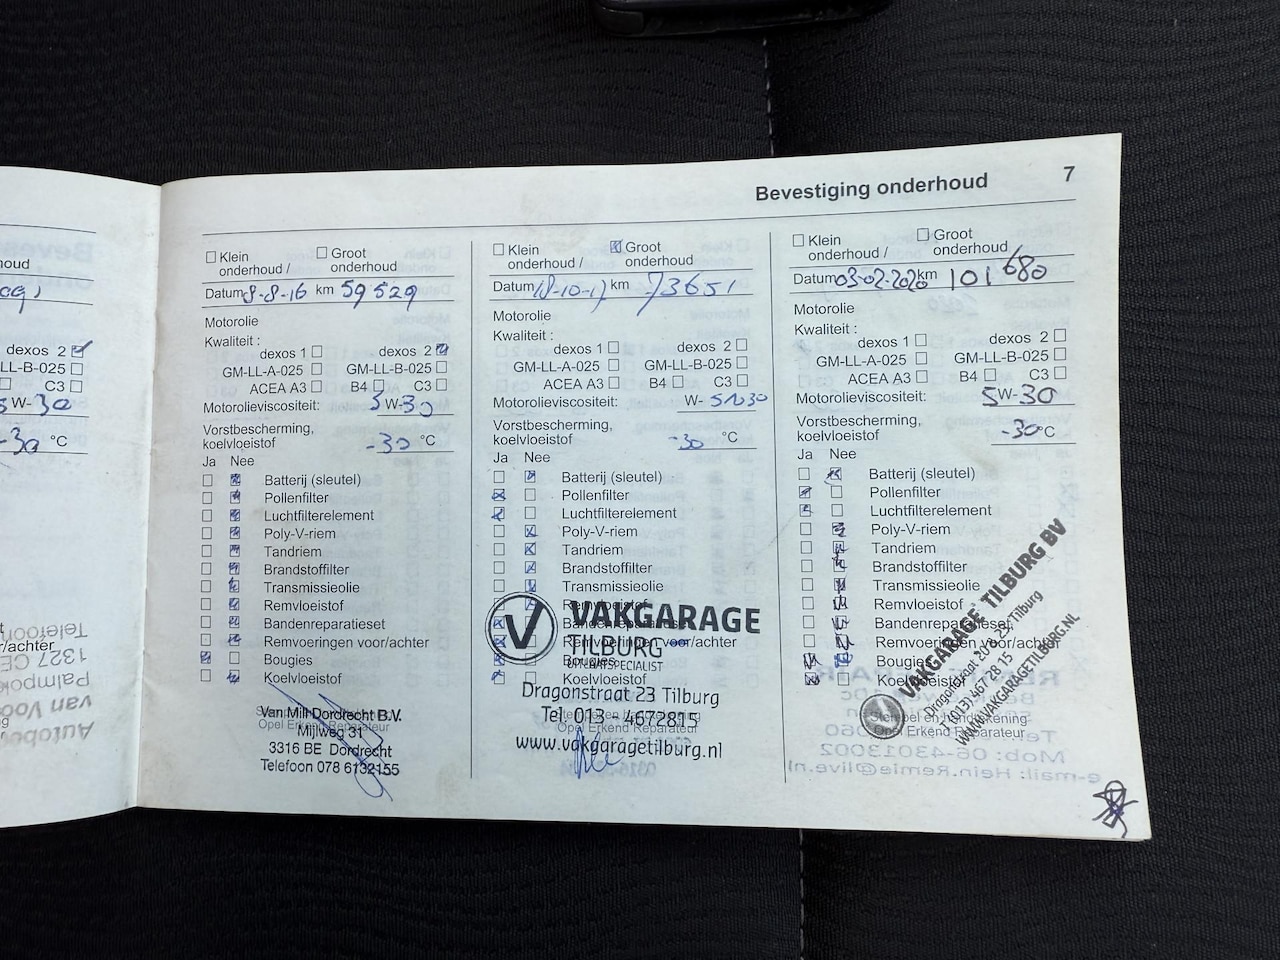 Bevestiging onderhoud 7
oud
dexos 2
LL-B-025
C3
W-30
-30 °C
/achter
Klein onderhoud / Groot onderhoud
Datum 8-8-16 km 59529
Motorolie
Kwaliteit :
dexos 1 dexos 2
GM-LL-A-025 GM-LL-B-025
ACEA A3 B4 C3
Motorolieviscositeit: 5 W-30
Vorstbescherming,
koelvloeistof -30 °C
Ja Nee
Batterij (sleutel)
Pollenfilter
Luchtfilterelement
Poly-V-riem
Tandriem
Brandstoffilter
Transmissieolie
Remvloeistof
Bandenreparatieset
Remvoeringen voor/achter
Bougies
Koelvloeistof
Van Mill Dordrecht B.V.
Opel Erkend Reparateur
Mijlweg 31
3316 BE Dordrecht
Telefoon 078 6132155
Klein onderhoud / Groot onderhoud
Datum 18-10-17 km 73651
Motorolie
Kwaliteit :
dexos 1 dexos 2
GM-LL-A-025 GM-LL-B-025
ACEA A3 B4 C3
Motorolieviscositeit: W- 5W30
Vorstbescherming,
koelvloeistof -30 °C
Ja Nee
Batterij (sleutel)
Pollenfilter
Luchtfilterelement
Poly-V-riem
Tandriem
Brandstoffilter
Transmissieolie
Remvloeistof
Bandenreparatieset
Remvoeringen voor/achter
Bougies
Koelvloeistof
VAKGARAGE
TILBURG
Dragonstraat 23 Tilburg
Tel. 013 - 4672815
Opel Erkend Reparateur
www.vakgaragetilburg.nl
Klein onderhoud / Groot onderhoud
Datum 03-02-2020 km 101680
Motorolie
Kwaliteit :
dexos 1 dexos 2
GM-LL-A-025 GM-LL-B-025
ACEA A3 B4 C3
Motorolieviscositeit: 5W-30
Vorstbescherming,
koelvloeistof -30°C
Ja Nee
Batterij (sleutel)
Pollenfilter
Luchtfilterelement
Poly-V-riem
Tandriem
Brandstoffilter
Transmissieolie
Remvloeistof
Bandenreparatieset
Remvoeringen voor/achter
Bougies
Koelvloeistof
Stempel en handtekening
Opel Erkend Reparateur
VAKGARAGE TILBURG BV
Dragonstraat 23 Tilburg
T (013) 467 28 15
WWW.VAKGARAGETILBURG.NL